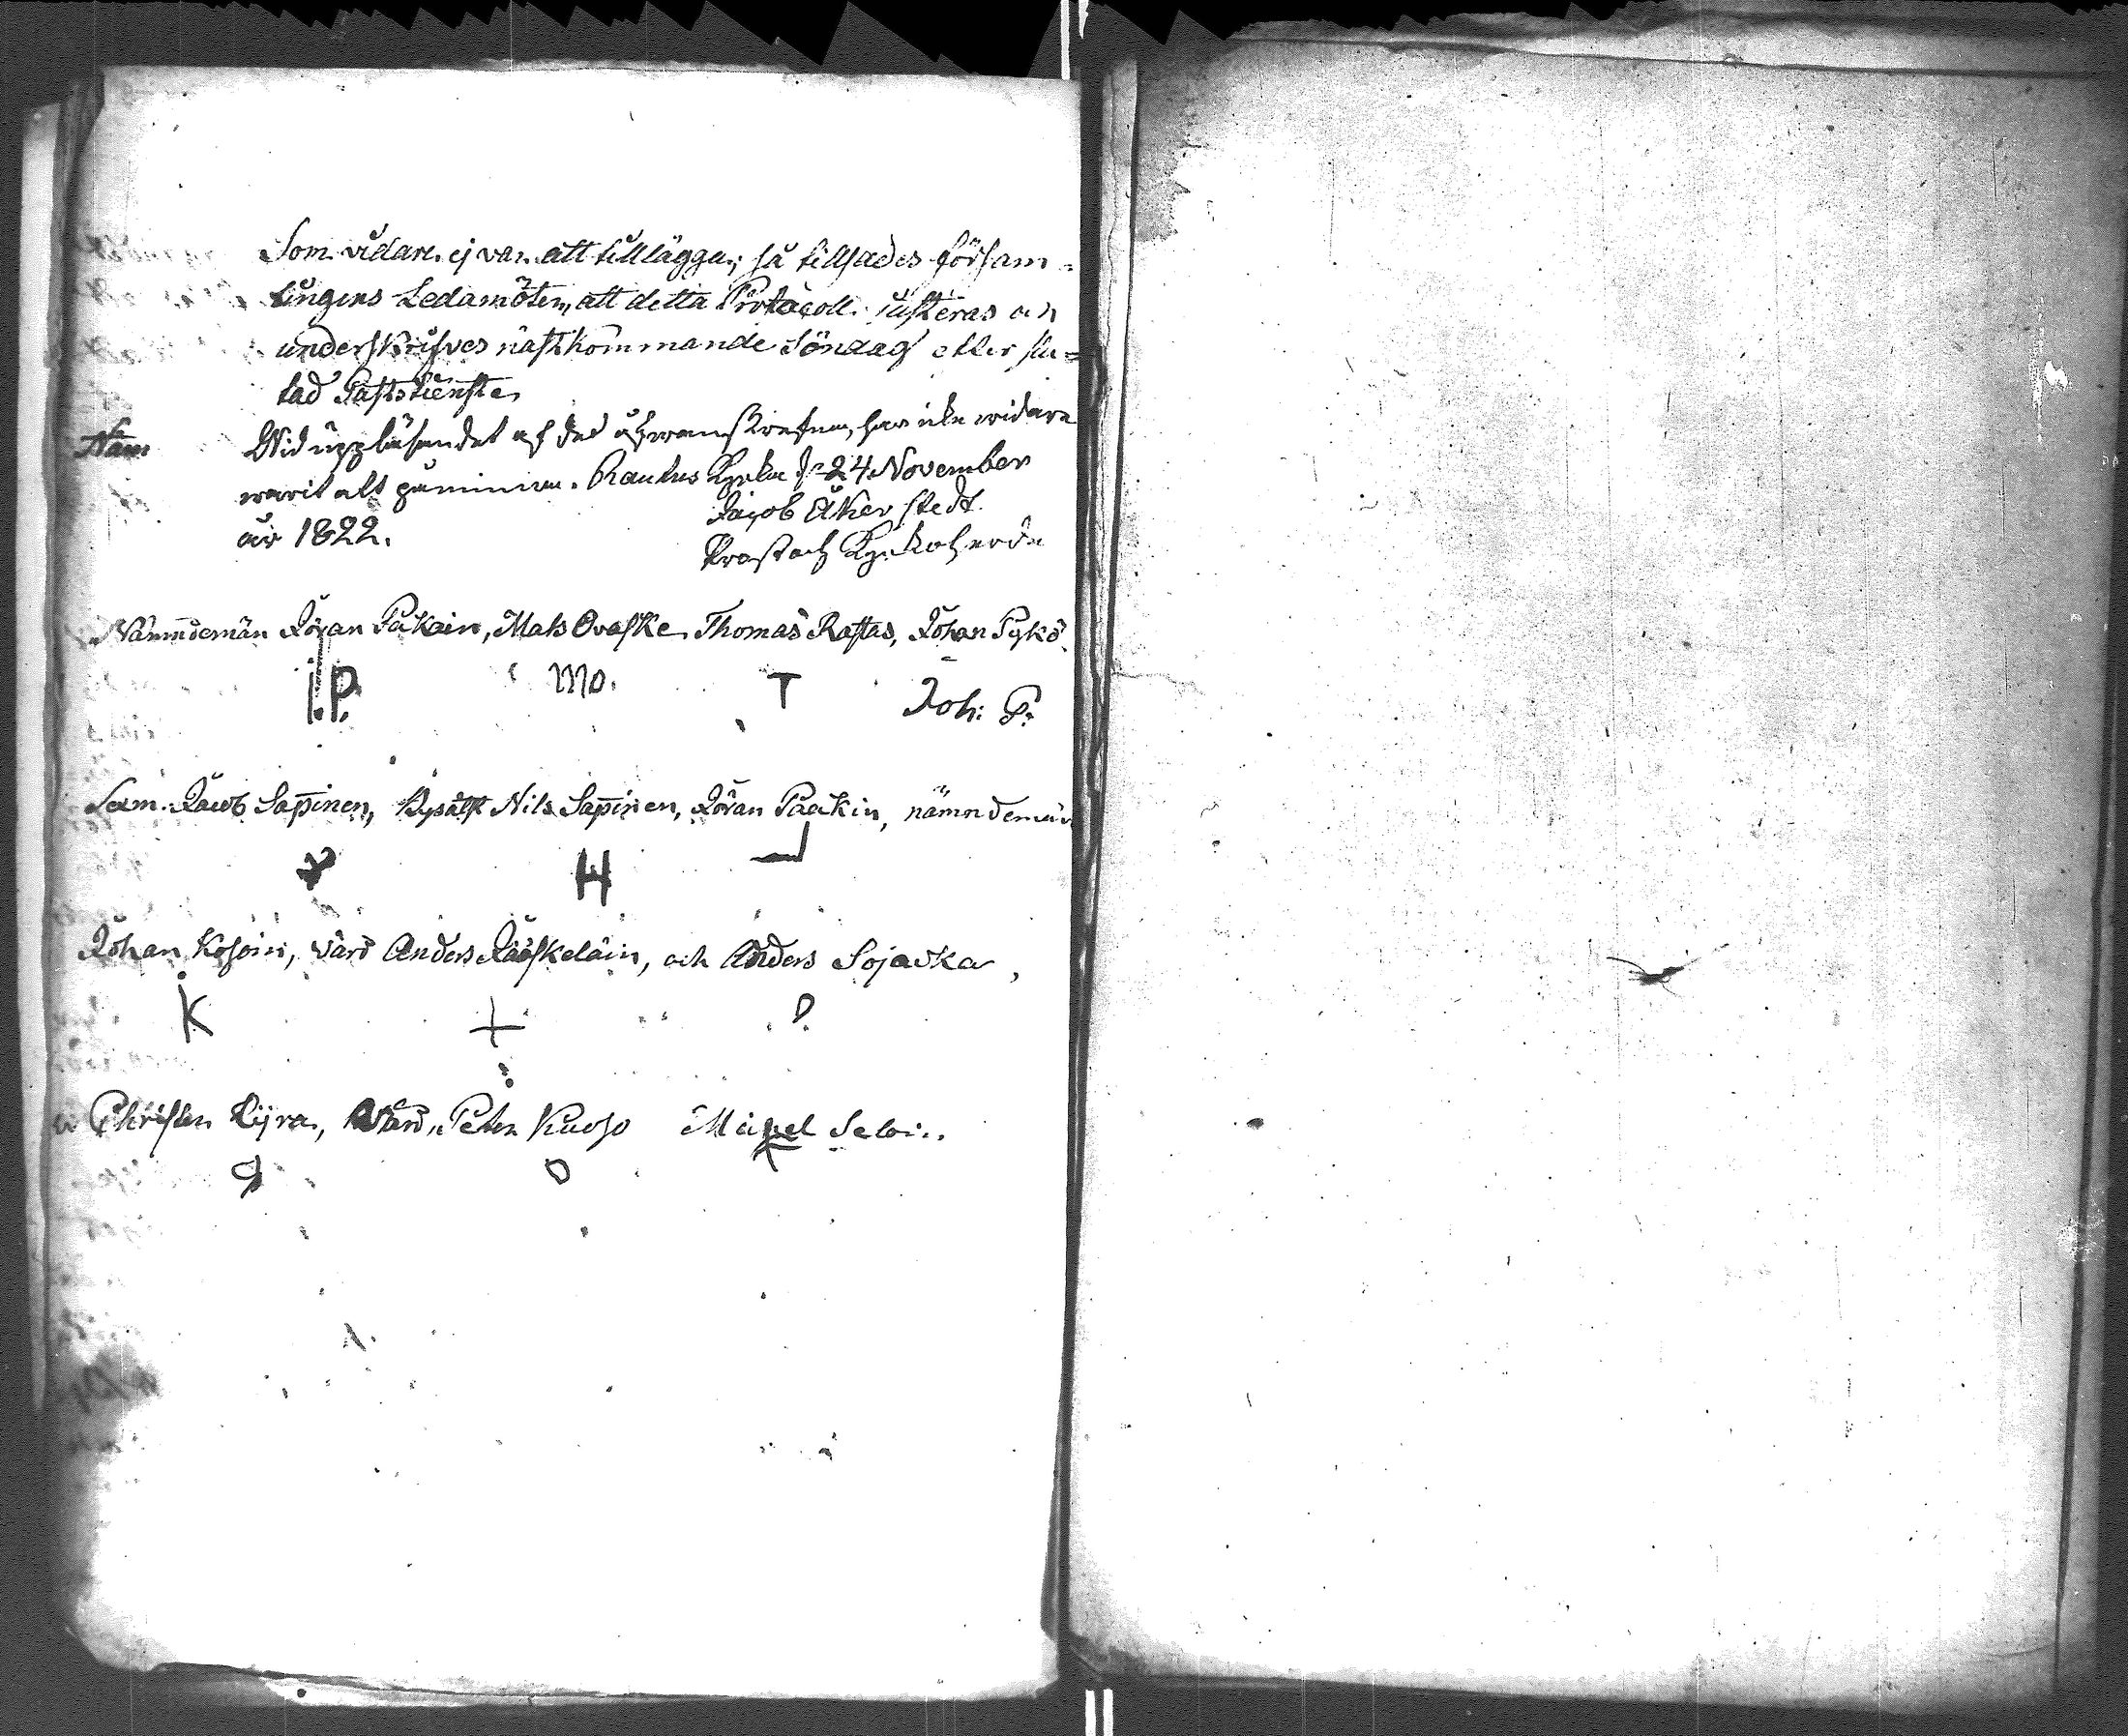 Som vidare ej var att tillägga, så tillsades försam-
lingens Ledamöter, att detta Protocoll justeras och
underskrifves nästkommande Söndag efter slu-
tad Gudstienste
Wid uppläsandet af det ofvanskrefne, har icke widare
warit alt påminna. Rautus Kyrka d. 24 November
år 1822.
Jacob Åkerstedt.
Prost och Kyrkoherde
Nämndemän Jöran Päkäin, Mats Ovaske Thomas Rastas, Johan Pykö
I.P. MO. T Joh: P:
Jacob Sapinen, Nils Sapinen, Jöran Paakin, nämndemän
H
Johan Kosoin, värd Anders Jääskeläin, och Anders Sojacka,
K +
Christer Kijra, Värd Peter Kuoso